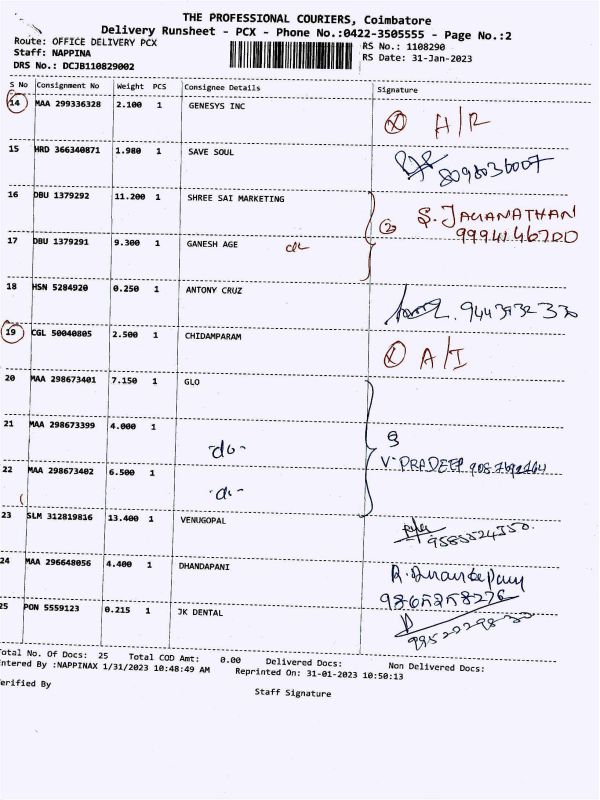 THE PROFESSIONAL COURIERS, Coimbatore
Delivery Runsheet - PCX - Phone No.:0422-3505555 - Page No.:2
Route: OFFICE DELIVERY PCX
Staff: NAPPINA
DRS No.: DCJB110829002
RS No.: 1108290
RS Date: 31-Jan-2023
S No Consignment No Weight PCS Consignee Details Signature
14 MAA 299336328 2.100 1 GENESYS INC
15 HRD 366340871 1.980 1 SAVE SOUL 8098036007
16 DBU 1379292 11.200 1 SHREE SAI MARKETING S. JAYANATHAN
17 DBU 1379291 9.300 1 GANESH AGE
18 HSN 5284920 0.250 1 ANTONY CRUZ
19 CGL 50040805 2.500 1 CHIDAMPARAM A/I
20 MAA 298673401 7.150 1 GLO
21 MAA 298673399 4.000 1 -do-
22 MAA 298673402 6.500 1 V. PRADEEP
23 SLM 312819816 13.400 1 VENUGOPAL
24 MAA 296648056 4.400 1 DHANDAPANI
25 PON 5559123 0.215 1 JK DENTAL
Total No. Of Docs: 25 Total COD Amt: 0.00 Delivered Docs: Non Delivered Docs:
Entered By :NAPPINAX 1/31/2023 10:48:49 AM Reprinted On: 31-01-2023 10:50:13
Verified By
Staff Signature